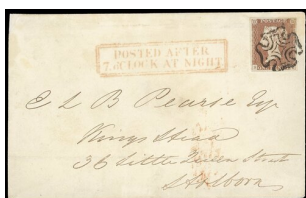 POSTED AFTER
7.O'CLOCK AT NIGHT
E L B Pearse Esq
Kings Head
36 Little Queen Street
Holborn